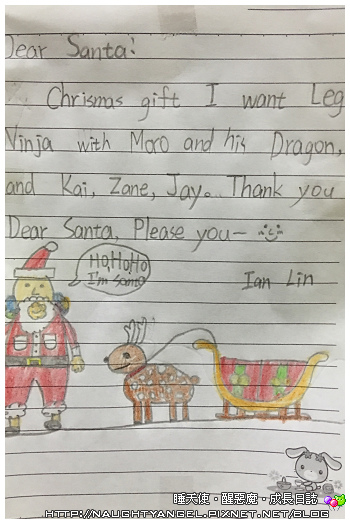 Dear Santa:
Chrismas gift I want Leg
Ninja with Moro and his Dragon,
and Kai, Zane, Jay。Thank you
Dear Santa, Please you~
Ho,Ho,Ho
I'm Santa
Ian Lin
睡天使‧醒惡魔‧成長日誌
HTTP://NAUGHTYANGEL.PIXNET.NET/BLOG